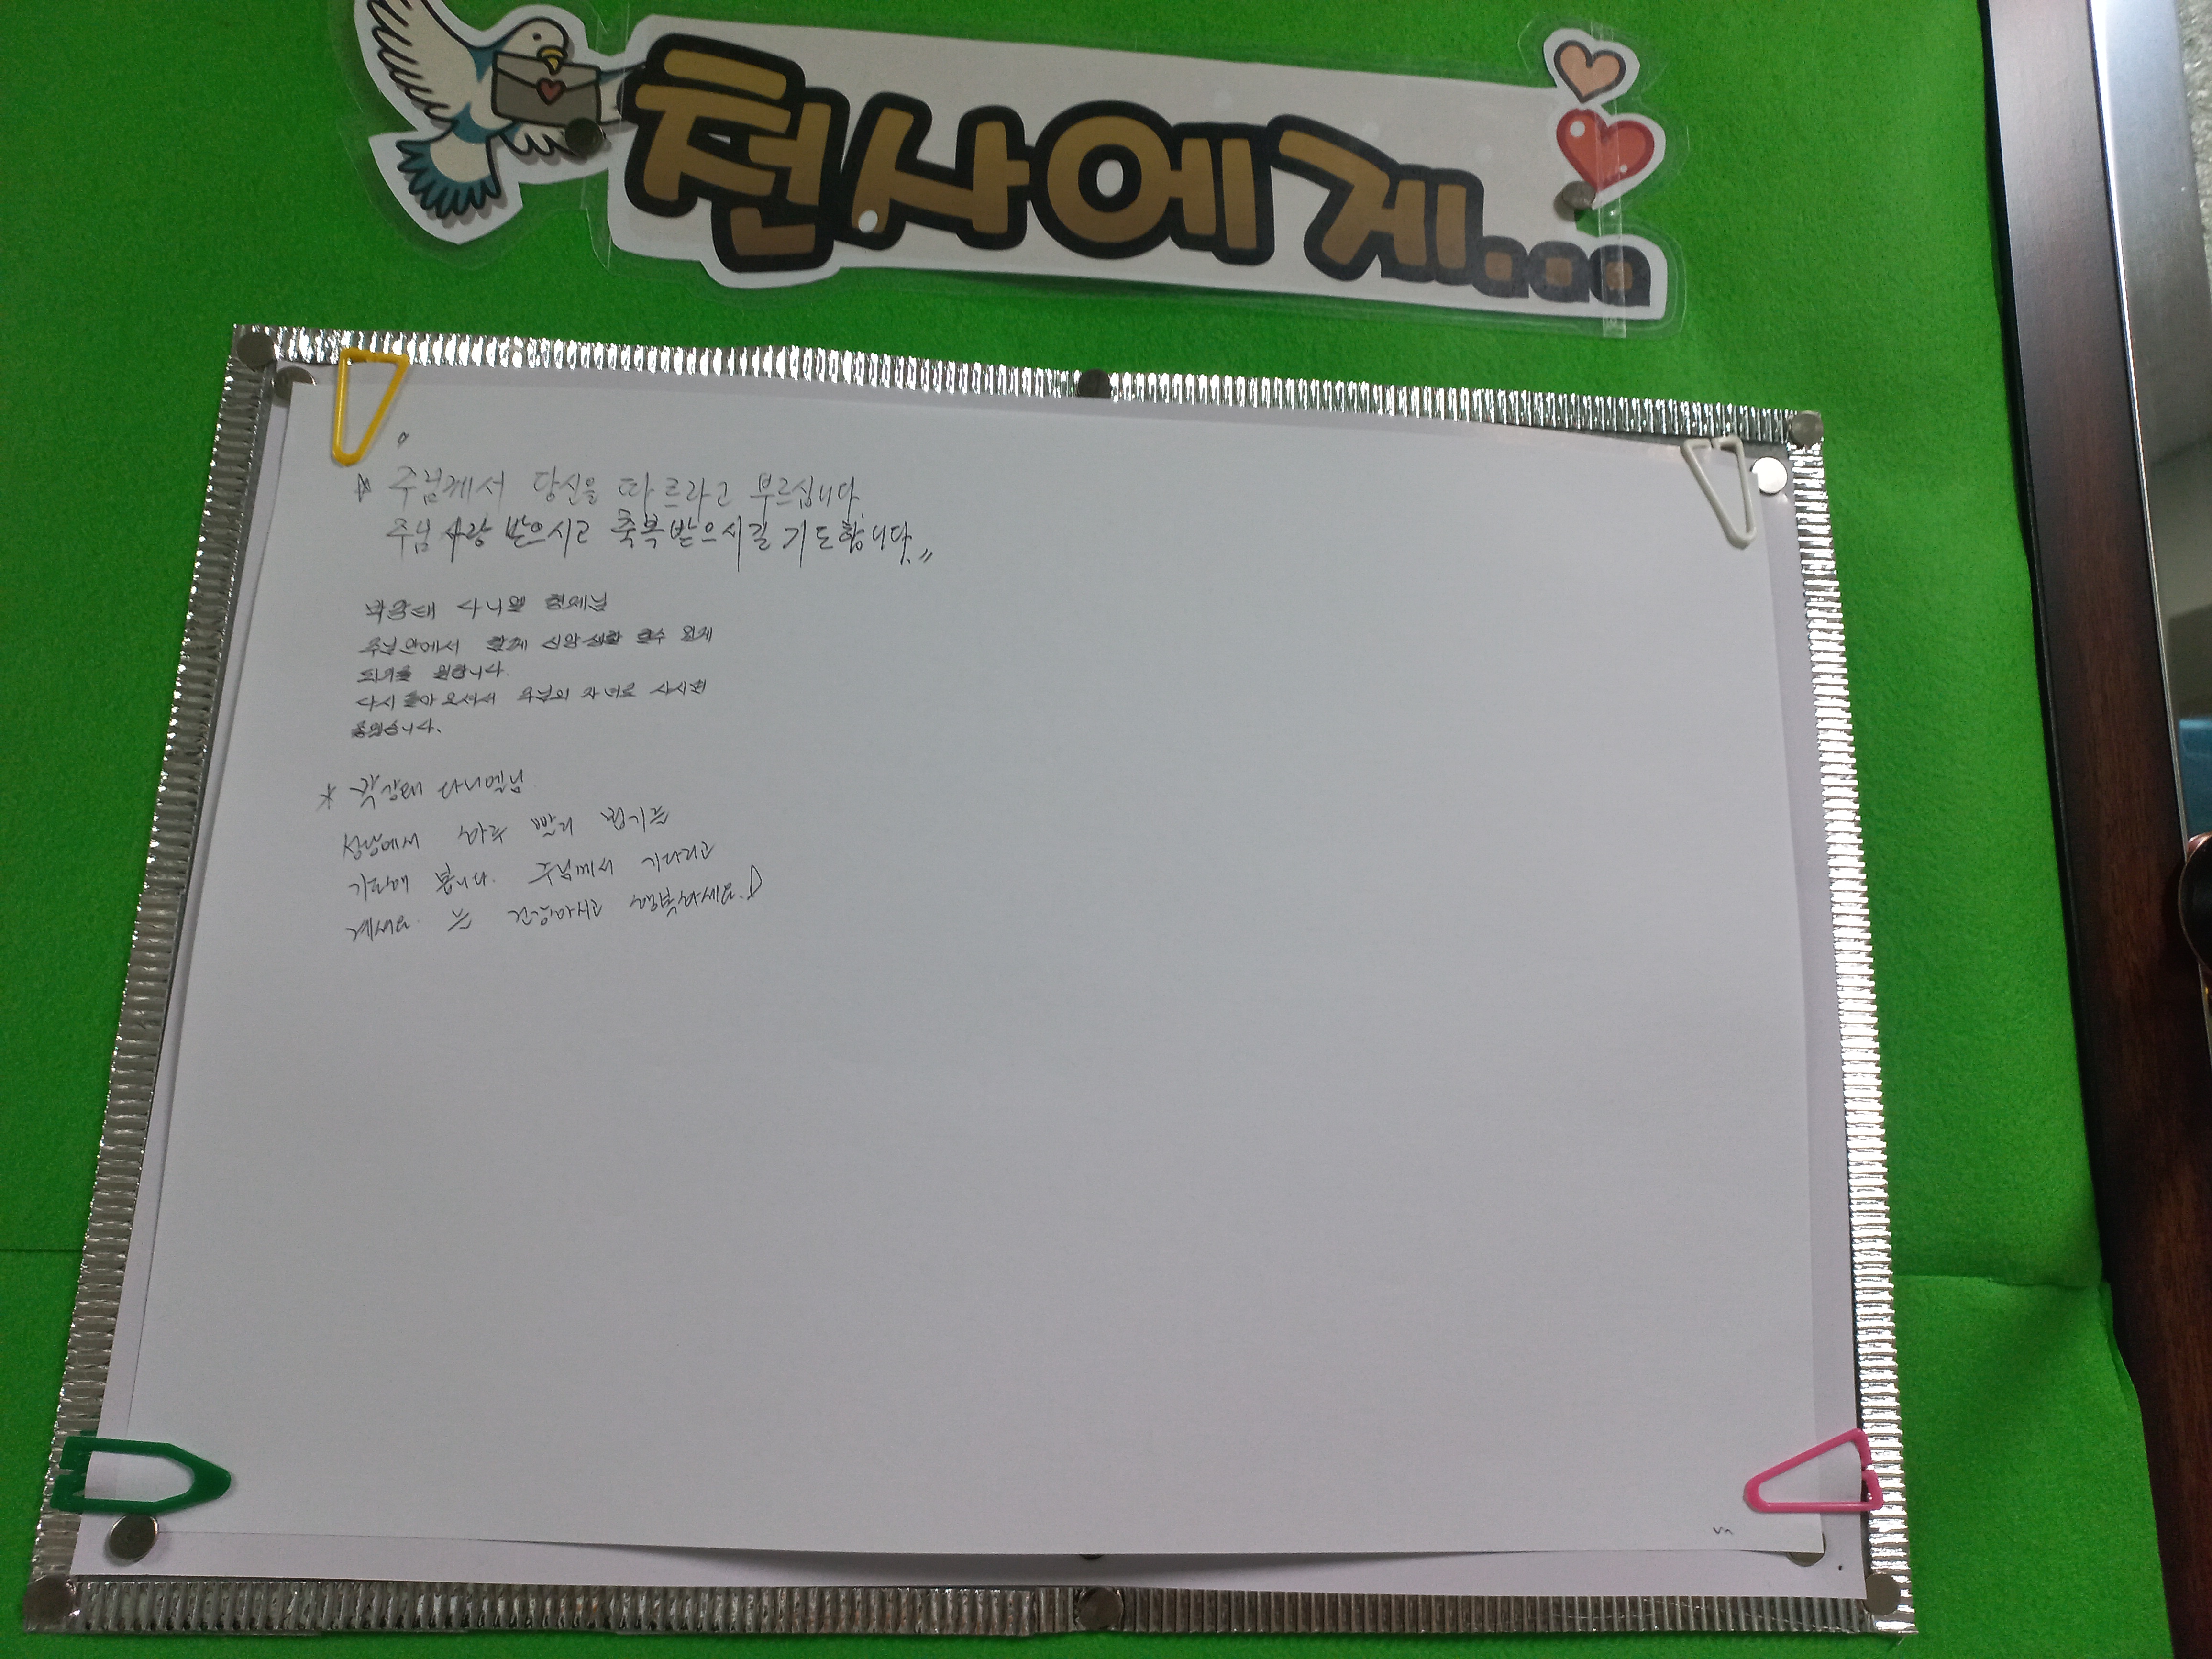 천사에게...
주님께서 당신을 따르라고 부르십니다.
주님 사랑 받으시고 축복받으시길 기도합니다.
다니엘 형제님
주님안에서 함께 신앙생활 할수 있게
되기를 원합니다.
다시 돌아오셔서 주님의 자녀로 사시면
좋겠습니다.
* 다니엘님
성당에서 하루 빨리 뵙기를
기도해 봅니다. 주님께서 기다리고
계세요. 늘 건강하시고 행복하세요.♡